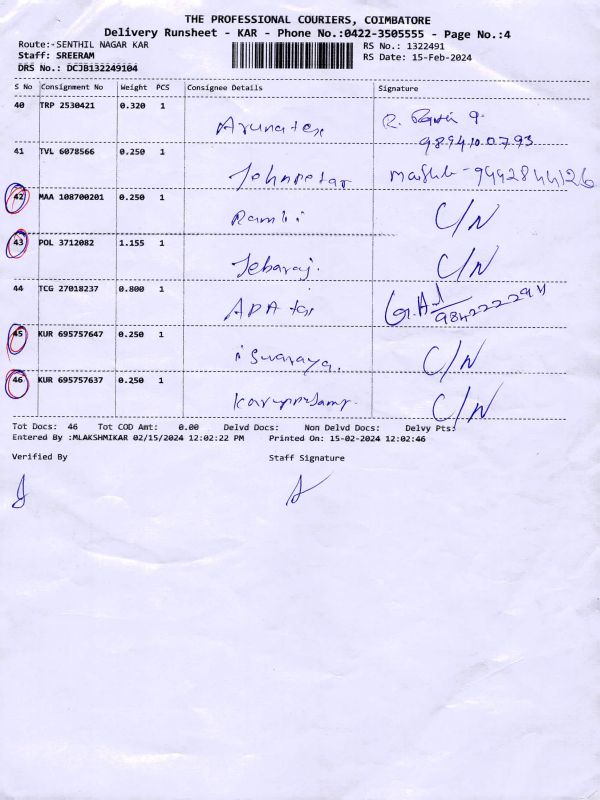 THE PROFESSIONAL COURIERS, COIMBATORE
Delivery Runsheet - KAR - Phone No.:0422-3505555 - Page No.:4
Route:-SENTHIL NAGAR KAR RS No.: 1322491
Staff: SREERAM RS Date: 15-Feb-2024
DRS No.: DCJB132249104
S No Consignment No Weight PCS Consignee Details Signature
40 TRP 2530421 0.320 1 Arunatex R.
9894100793
41 TVL 6078566 0.250 1 Johnpeter 9442844126
42 MAA 108700201 0.250 1 C/N
43 POL 3712082 1.155 1 Jebaraj. C/N
44 TCG 27018237 0.800 1
45 KUR 695757647 0.250 1 C/N
46 KUR 695757637 0.250 1 C/N
Tot Docs: 46 Tot COD Amt: 0.00 Delvd Docs: Non Delvd Docs: Delvy Pts:
Entered By :MLAKSHMIKAR 02/15/2024 12:02:22 PM Printed On: 15-02-2024 12:02:46
Verified By Staff Signature